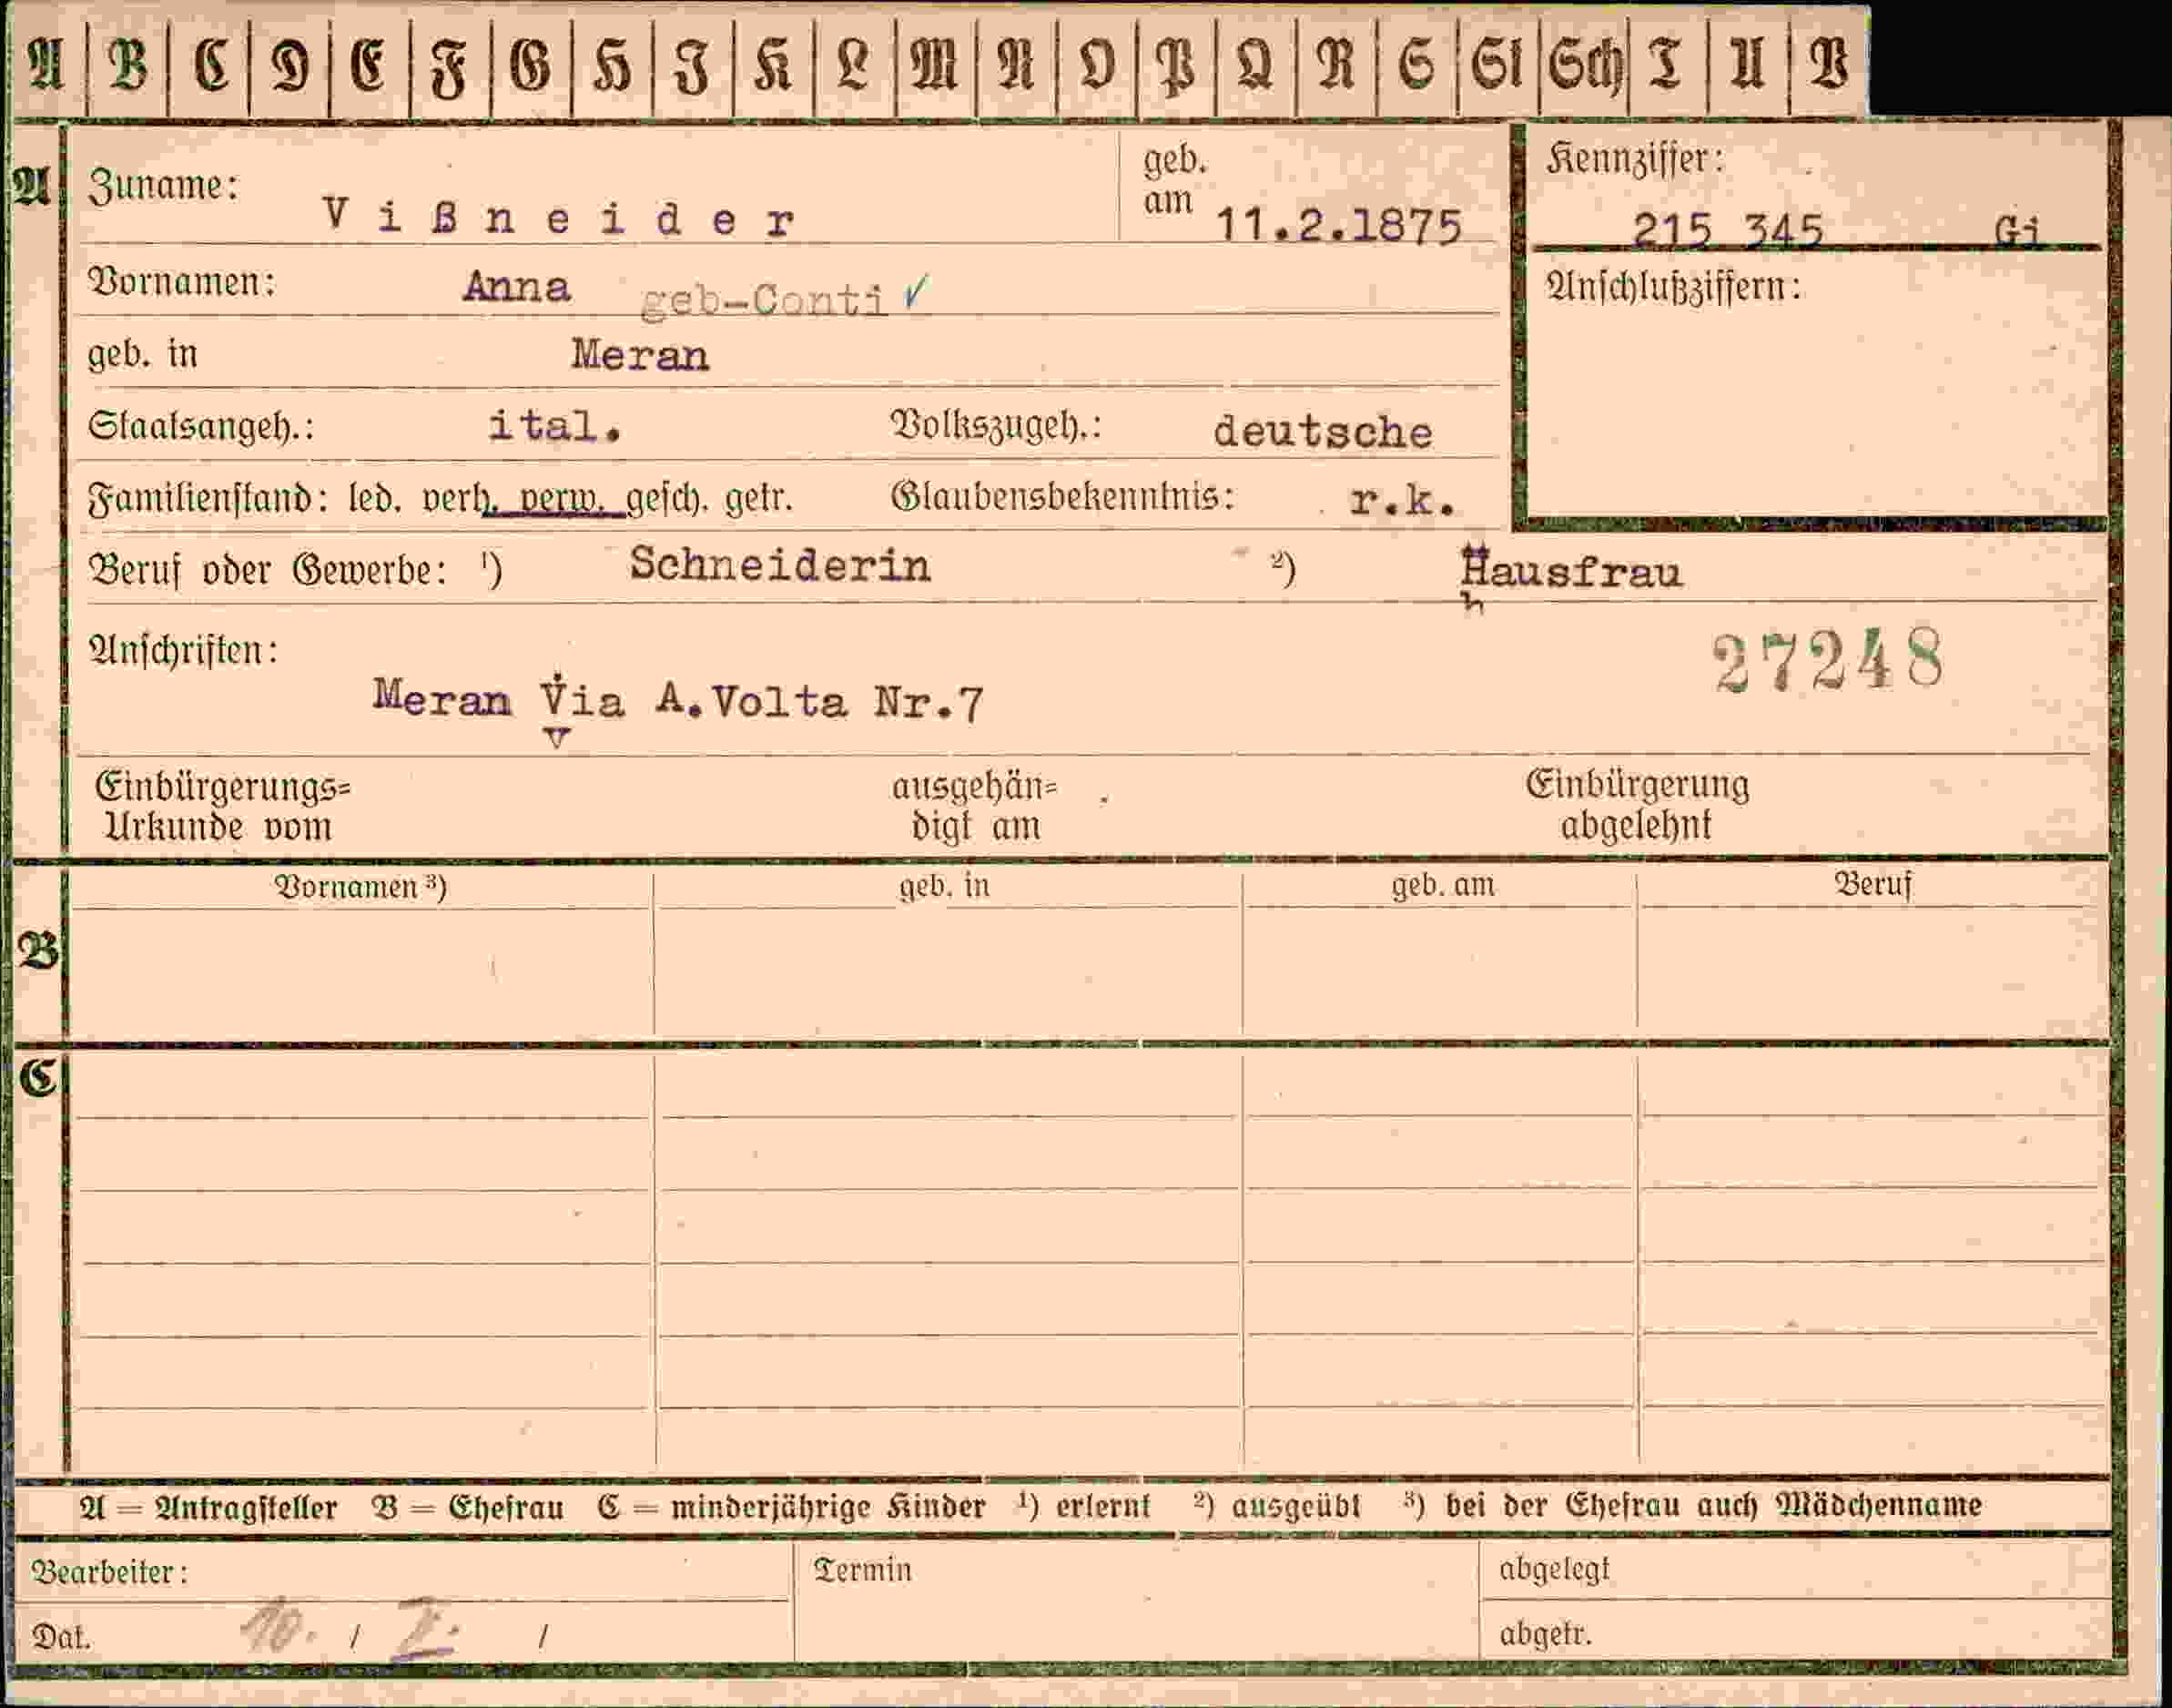 A B C D E F G H I K L M N O P Q R S St Sch T U V
A
Zuname: Vißneider geb. am 11.2.1875
Kennziffer: 215 345 Gi
Vornamen: Anna geb-Conti ✓
Anschlußziffern:
geb. in Meran
Staatsangeh.: ital. Volkszugeh.: deutsche
Familienstand: led. verh. verw. gesch. getr. Glaubensbekenntnis: r.k.
Beruf oder Gewerbe: ¹) Schneiderin ²) Hausfrau
Anschriften: 27248
Meran Via A.Volta Nr.7
Einbürgerungs= ausgehän= Einbürgerung
Urkunde vom digt am abgelehnt
Vornamen ³) geb. in geb. am Beruf
B
C
A = Antragsteller B = Ehefrau C = minderjährige Kinder ¹) erlernt ²) ausgeübt ³) bei der Ehefrau auch Mädchenname
Bearbeiter: Termin abgelegt
Dat. 10. / / abgetr.